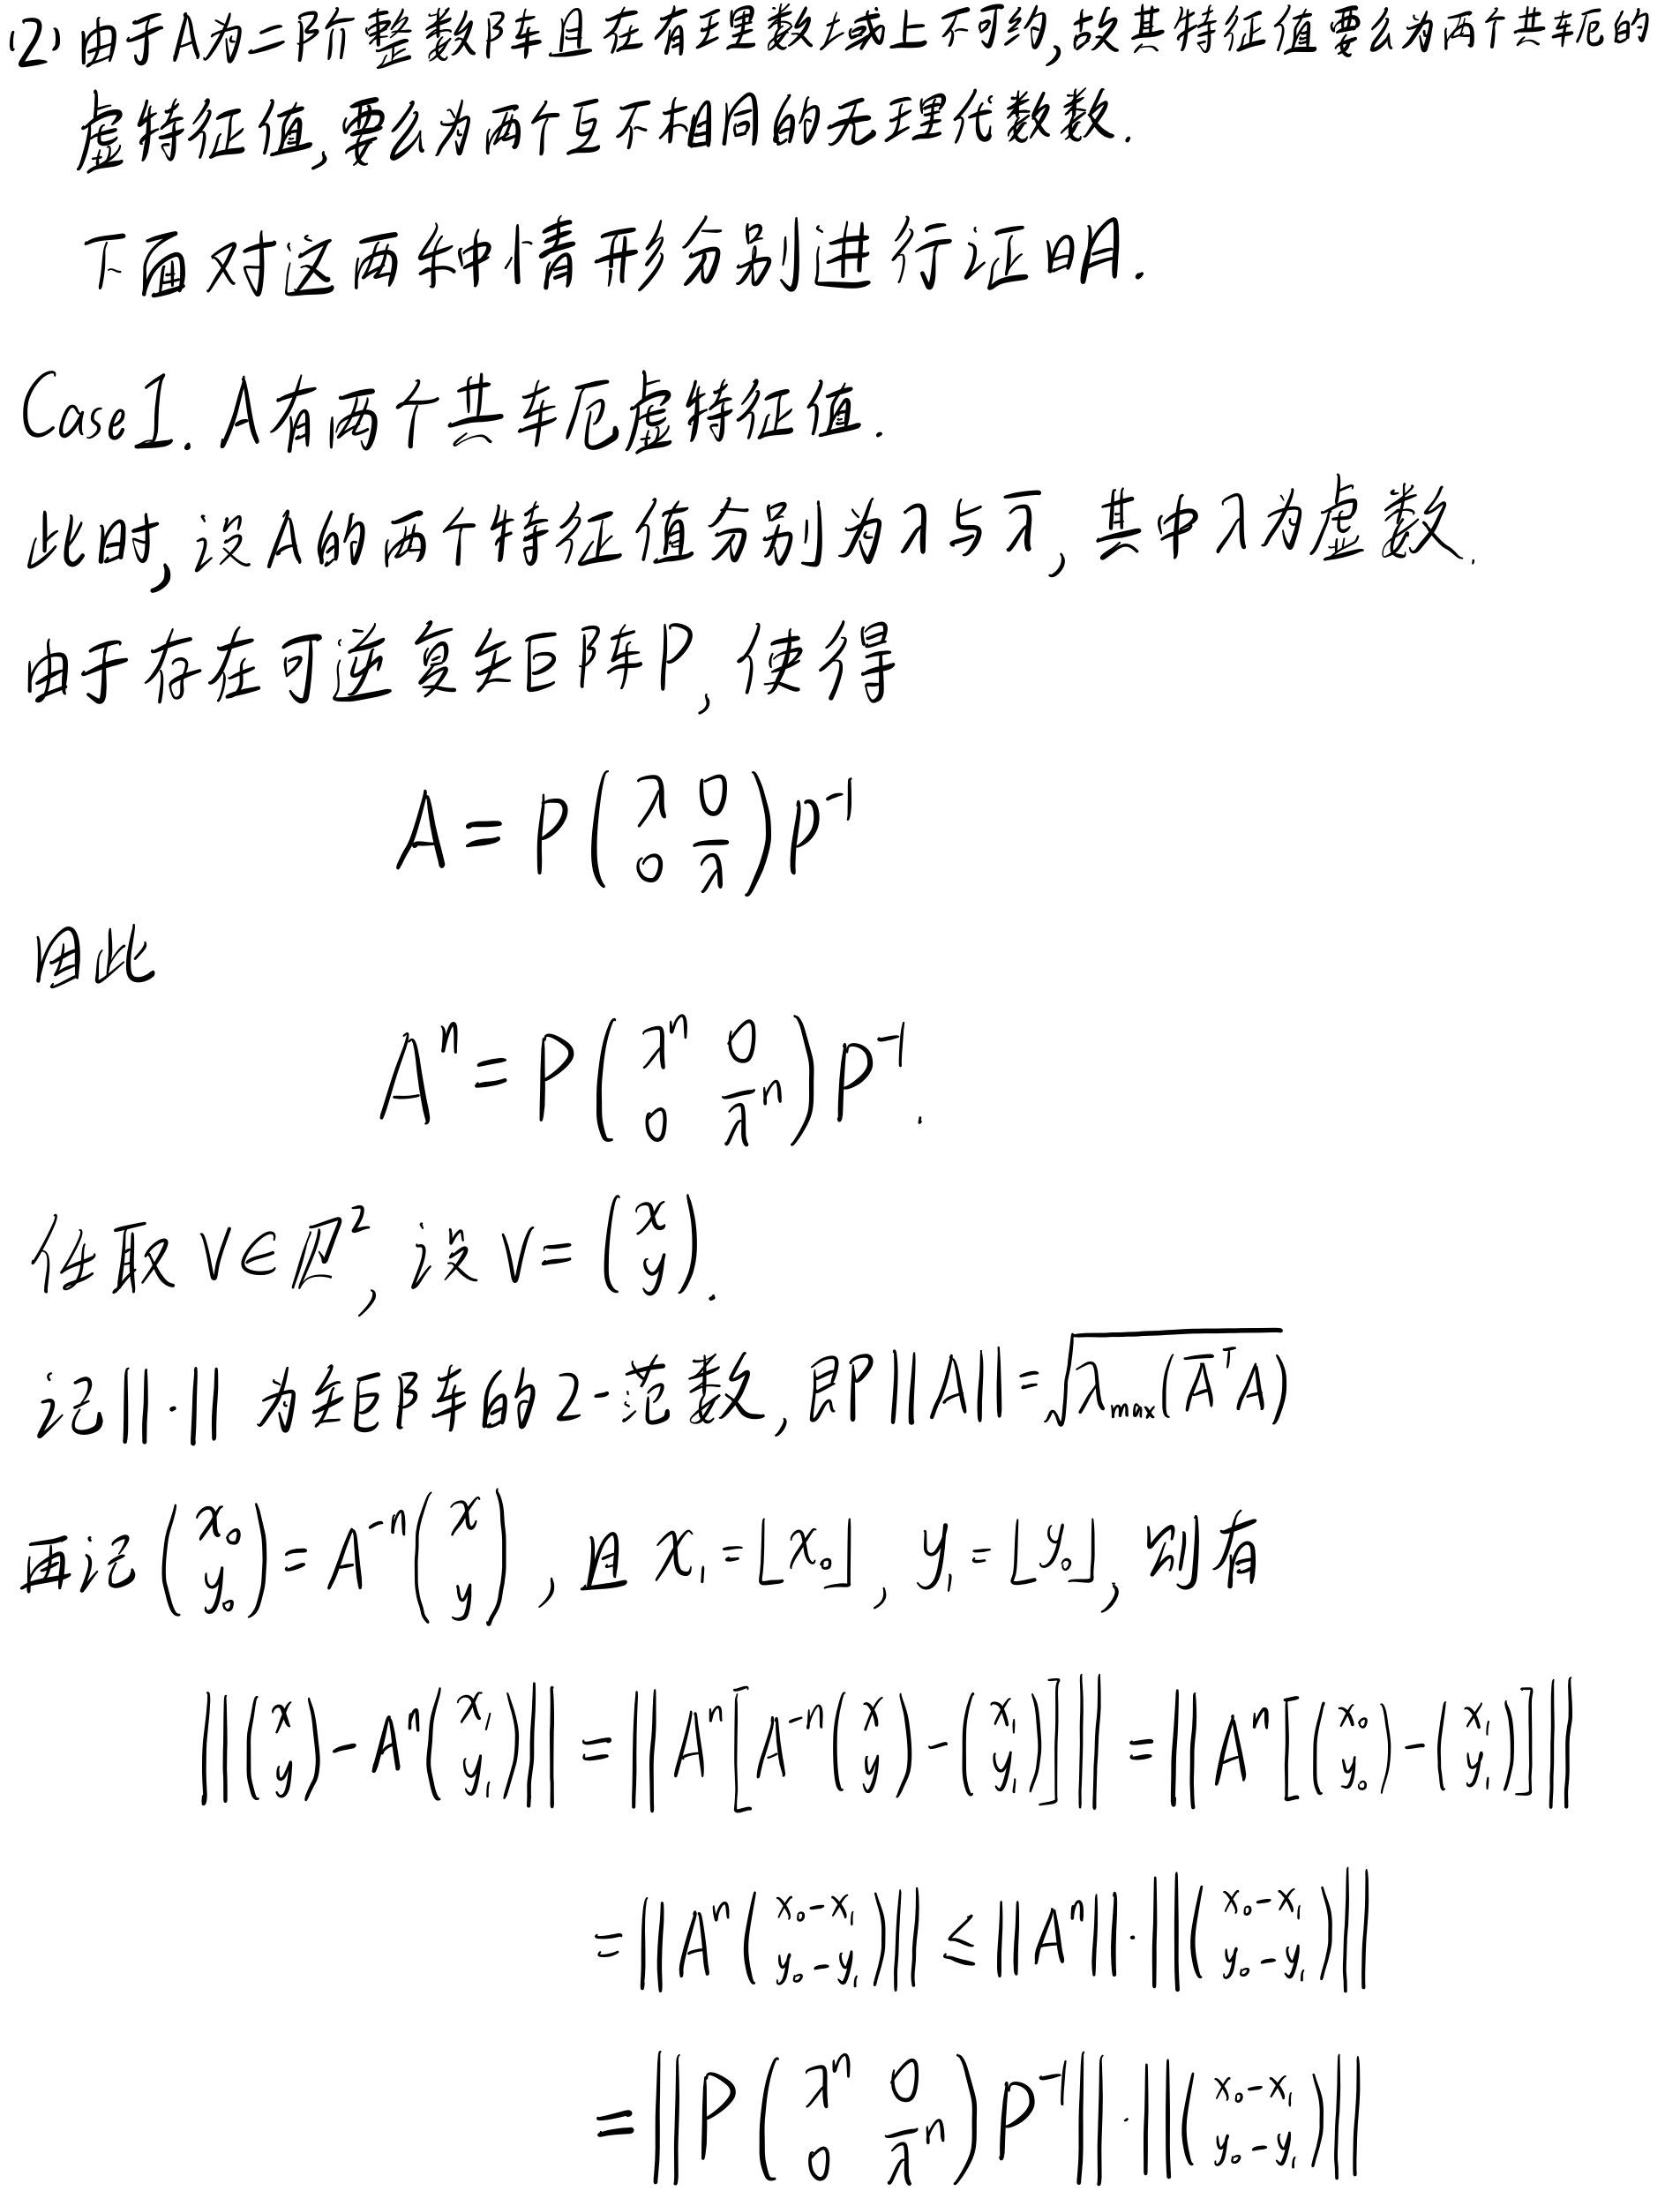 (2) 由于A为二阶整数阵且在有理数域上不可约,故其特征值要么为两个共轭的
虚特征值,要么为两个互不相同的无理代数数.
下面对这两种情形分别进行证明.
Case1. A有两个共轭虚特征值.
此时,设A的两个特征值分别为λ与λ̅, 其中λ为虚数.
由于存在可逆复矩阵P,使得
A = P \begin{pmatrix} λ & 0 \\ 0 & \overline{λ} \end{pmatrix} P^{-1}
因此
A^n = P \begin{pmatrix} λ^n & 0 \\ 0 & \overline{λ}^n \end{pmatrix} P^{-1}.
任取 V∈ℤ^2, 设 V = \begin{pmatrix} x \\ y \end{pmatrix}.
记||·|| 为矩阵的2-范数, 即||A|| = \sqrt{λ_{max}(\overline{A}^T A)}
再记 \begin{pmatrix} x_0 \\ y_0 \end{pmatrix} = A^{-n} \begin{pmatrix} x \\ y \end{pmatrix}, 且 x_1 = ⌊x_0⌋, y_1 = ⌊y_0⌋, 则有
|| \begin{pmatrix} x \\ y \end{pmatrix} - A^n \begin{pmatrix} x_1 \\ y_1 \end{pmatrix} || = || A^n [ A^{-n} \begin{pmatrix} x \\ y \end{pmatrix} - \begin{pmatrix} x_1 \\ y_1 \end{pmatrix} ] || = || A^n [ \begin{pmatrix} x_0 \\ y_0 \end{pmatrix} - \begin{pmatrix} x_1 \\ y_1 \end{pmatrix} ] ||
= || A^n \begin{pmatrix} x_0 - x_1 \\ y_0 - y_1 \end{pmatrix} || ≤ ||A^n|| · || \begin{pmatrix} x_0 - x_1 \\ y_0 - y_1 \end{pmatrix} ||
= || P \begin{pmatrix} λ^n & 0 \\ 0 & \overline{λ}^n \end{pmatrix} P^{-1} || · || \begin{pmatrix} x_0 - x_1 \\ y_0 - y_1 \end{pmatrix} ||